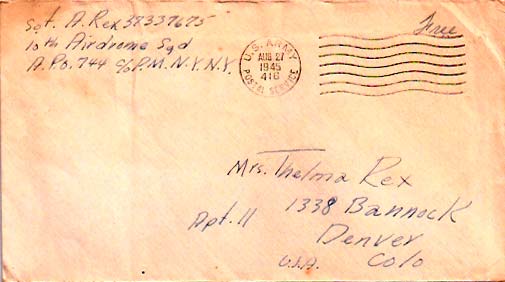 Sgt. A. Rex 37337675
10th Airdrome Sqd
A.P.O. 744 c/o P.M. N.Y. N.Y.
U.S. ARMY
AUG 27
1945
416
POSTAL SERVICE
Free
Mrs. Thelma Rex
Apt. 11 1338 Bannock
Denver
U.S.A. Colo